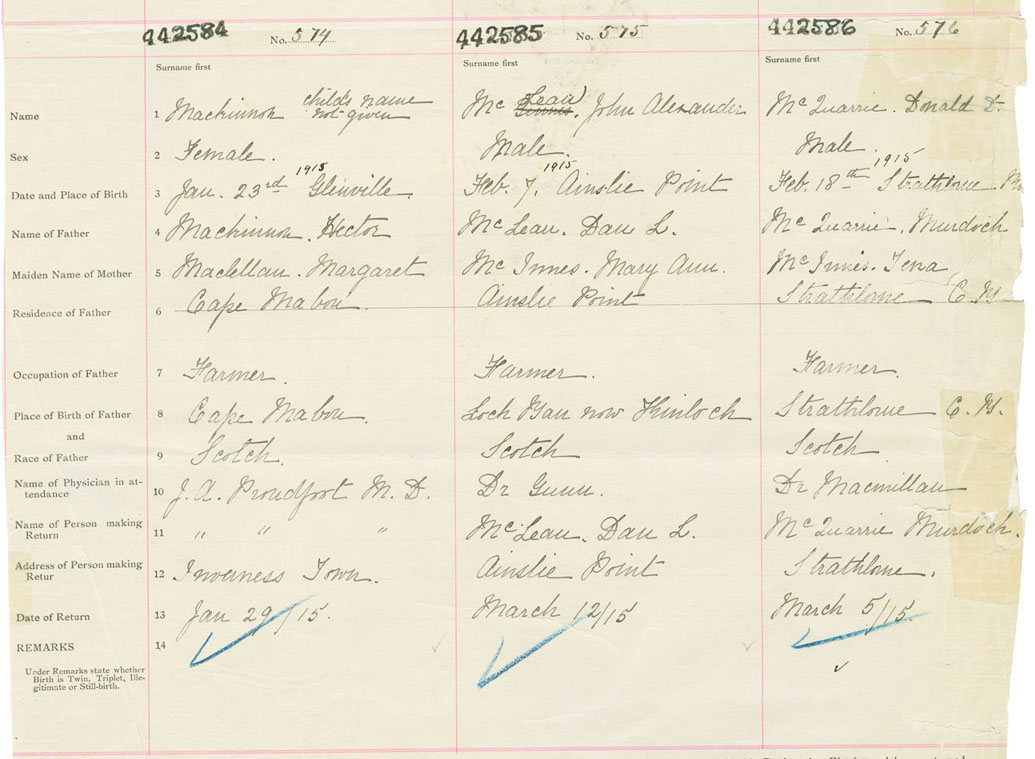 442584 No. 574 442585 No. 575 442586 No. 576
Surname first Surname first Surname first
Name 1 Mackinnon child's name not given Mc Lean, John Alexander Mc Quarrie. Donald D.
Sex 2 Female. Male. Male.
Date and Place of Birth 3 Jan. 23rd 1915 Glenville. Feb. 7. 1915 Ainslie Point Feb. 18th 1915 Strathlorne
Name of Father 4 Mackinnon. Hector Mc Lean. Dan L. Mc Quarrie. Murdoch
Maiden Name of Mother 5 Maclellan. Margaret Mc Innes. Mary Ann. Mc Innis. Tena
Residence of Father 6 Cape Mabou. Ainslie Point Strathlorne
Occupation of Father 7 Farmer. Farmer. Farmer.
Place of Birth of Father 8 Cape Mabou. Loch Ban now Kinloch Strathlorne
and
Race of Father 9 Scotch. Scotch Scotch
Name of Physician in at-
tendance 10 J. A. Proudfoot M. D. Dr Gunn. Dr Macmillan
Name of Person making
Return 11 " " " Mc Lean. Dan L. Mc Quarrie Murdoch.
Address of Person making
Retur 12 Inverness Town. Ainslie Point Strathlorne.
Date of Return 13 Jan 29/15. March 12/15 March 5/15.
REMARKS 14
Under Remarks state whether
Birth is Twin, Triplet, Ille-
gitimate or Still-birth.